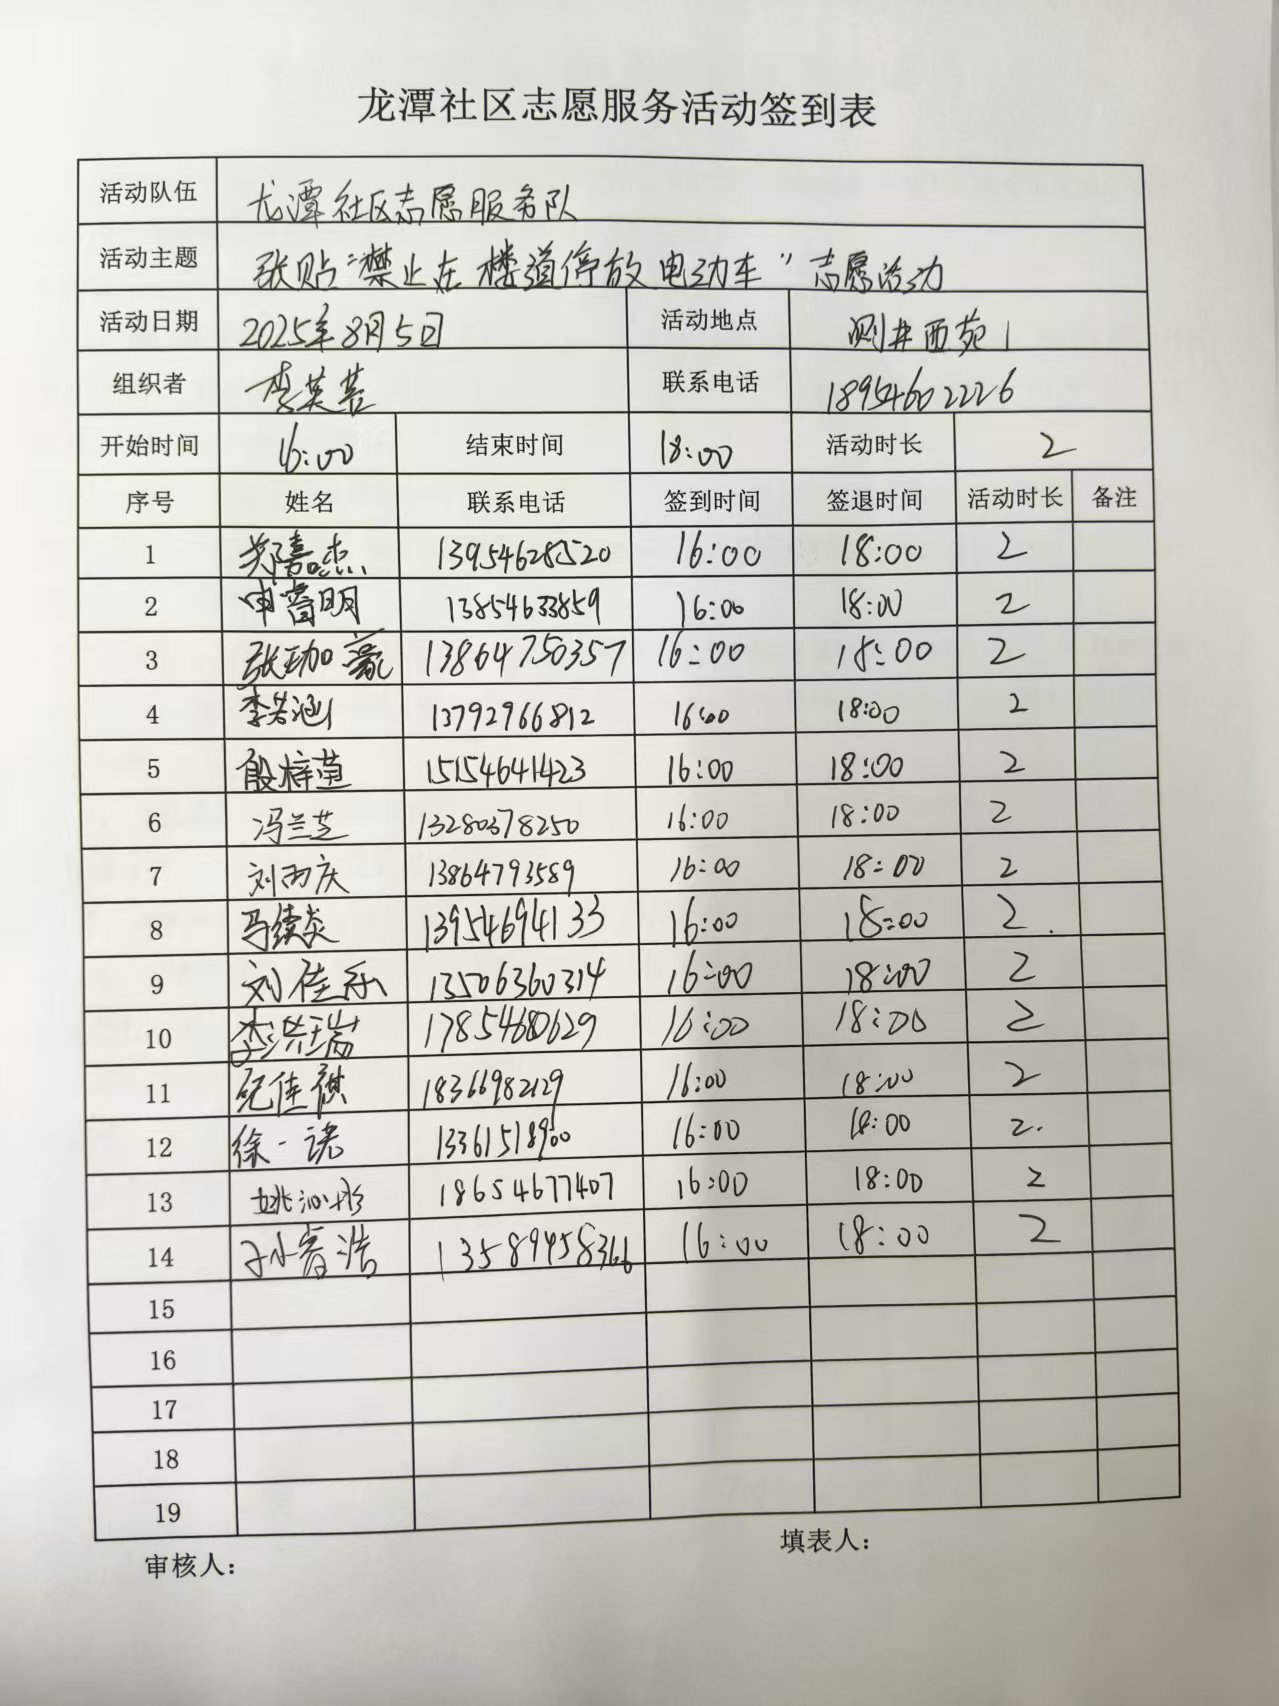 龙潭社区志愿服务活动签到表
活动队伍 龙潭社区志愿服务队
活动主题 张贴“禁止在楼道停放电动车”志愿活动
活动日期 2025年8月5日 活动地点 测井西苑
组织者 李英 联系电话 18954602226
开始时间 16:00 结束时间 18:00 活动时长 2
序号 姓名 联系电话 签到时间 签退时间 活动时长 备注
1 13954628520 16:00 18:00 2
2 申睿明 13854633859 16:00 18:00 2
3 张珈豪 13864750357 16:00 18:00 2
4 李若涵 13792966812 16:00 18:00 2
5 殷梓萱 15154641423 16:00 18:00 2
6 冯兰芝 13280378250 16:00 18:00 2
7 刘雨庆 13864793589 16:00 18:00 2
8 马续炎 13954694133 16:00 18:00 2
9 刘佳乐 13506360314 16:00 18:00 2
10 李洪瑞 17854680629 16:00 18:00 2
11 倪佳祺 18366982129 16:00 18:00 2
12 徐一诺 13361518900 16:00 18:00 2.
13 姚沁彤 18654677407 16:00 18:00 2
14 孙睿浩 13589458366 16:00 18:00 2
15
16
17
18
19
审核人： 填表人：